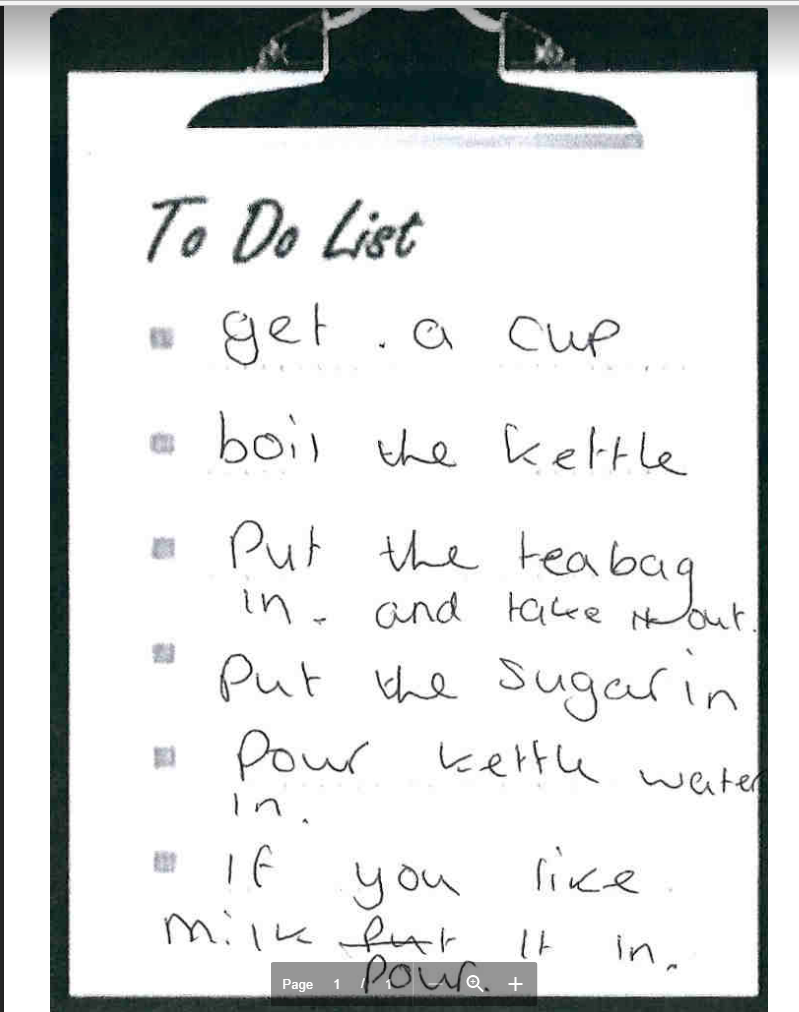 To Do List
get . a cup
boil the kettle
Put the teabag
in. and take it out.
Put the sugar in
Pour kettle water
in.
If you like
milk put it in.
Pour.
Page 1 / 1